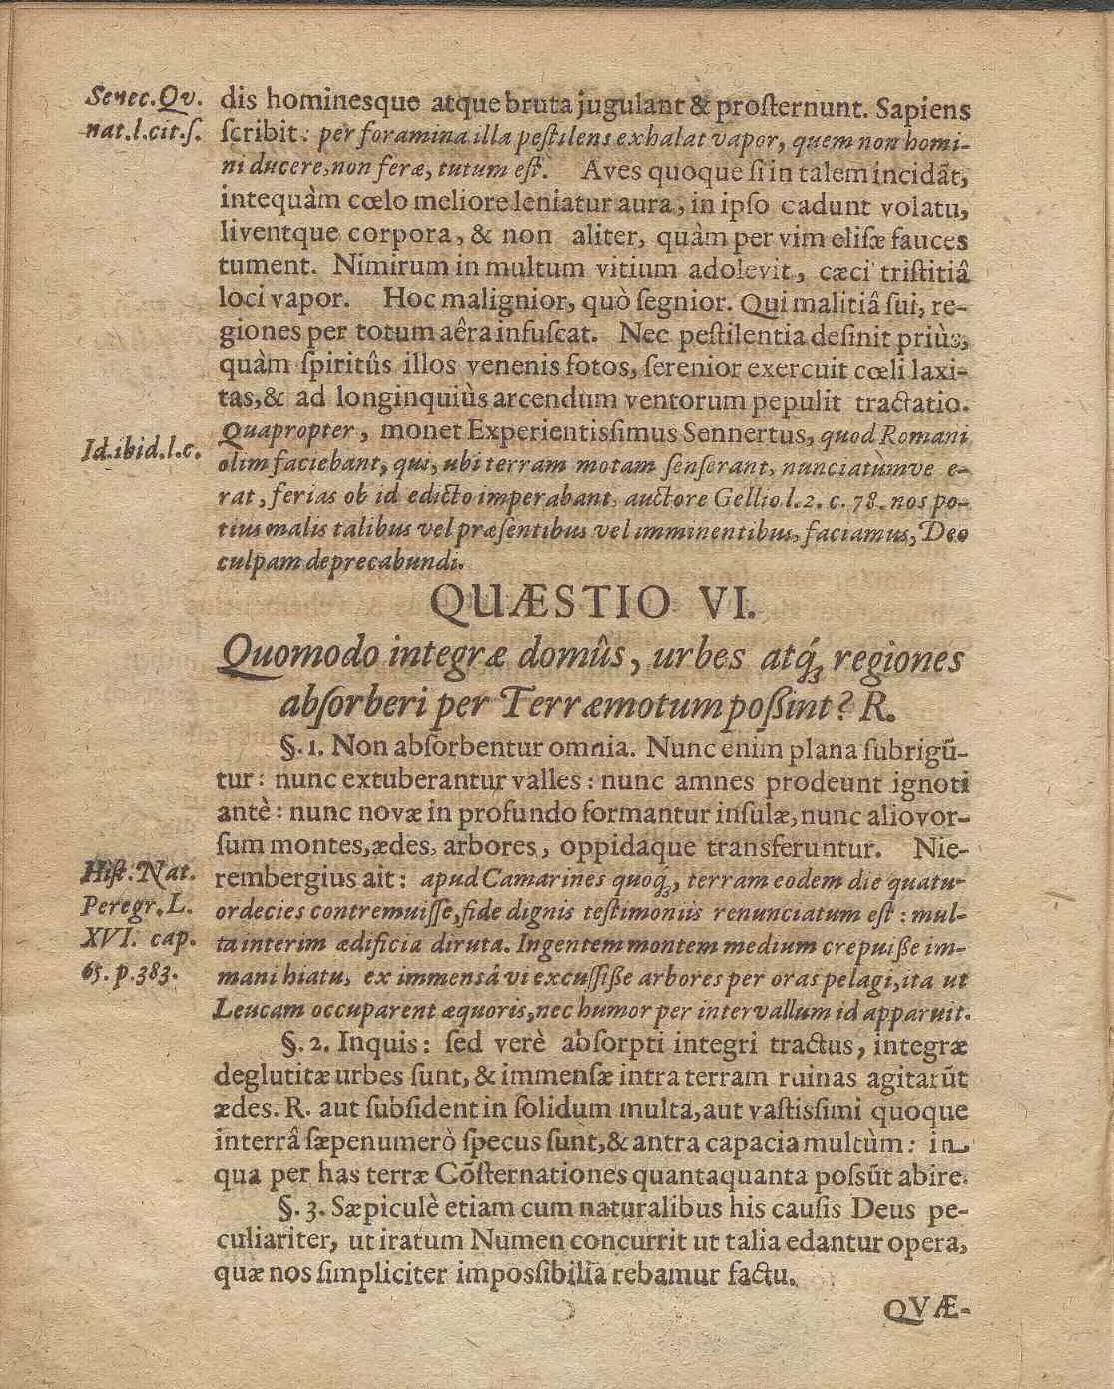 Senec. Qv.
nat. l. cit. ſ.
dis hominesque atque bruta jugulant & proſternunt. Sapiens
ſcribit: per foramina illa peſtilens exhalat vapor, quem non homi-
ni ducere, non feræ, tutum eſt. Aves quoque ſi in talem incidãt,
intequàm cœlo meliore leniatur aura, in ipſo cadunt volatu,
liventque corpora, & non aliter, quàm per vim eliſæ fauces
tument. Nimirum in multum vitium adolevit, cæci triſtitiâ
loci vapor. Hoc malignior, quò ſegnior. Qui malitiâ ſui, re-
giones per totum aêra infuſcat. Nec peſtilentia deſinit priùs,
quàm ſpiritûs illos venenis fotos, ſerenior exercuit cœli laxi-
tas, & ad longinquiùs arcendum ventorum pepulit tractatio.
Id. ibid. l. c.
Quapropter, monet Experientisſimus Sennertus, quod Romani
olim faciebant, qui, ubi terram motam ſenſerant, nunciatùmve e-
rat, ferias ob id edicto imperabant, auctore Gellio l. 2. c. 78. nos po-
tius malis talibus vel præſentibus vel imminentibus, faciamus, Deo
culpam deprecabundi.
QUÆSTIO VI.
Quomodo integræ domûs, urbes atq́ꝫ regiones
abſorberi per Terræmotum poßint? R.
§. 1. Non abſorbentur omnia. Nunc enim plana ſubrigũ-
tur: nunc extuberantur valles: nunc amnes prodeunt ignoti
antè: nunc novæ in profundo formantur inſulæ, nunc aliovor-
ſum montes, ædes, arbores, oppidaque transferuntur. Nie-
Hiſt. Nat.
Peregr. L.
XVI. cap.
65. p. 383.
rembergius ait: apud Camarines quoq́ꝫ, terram eodem die quatu-
ordecies contremuiſſe, fide dignis teſtimoniis renunciatum eſt: mul-
ta interim ædificia diruta. Ingentem montem medium crepuiße im-
mani hiatu, ex immensâ vi excuſſiße arbores per oras pelagi, ita ut
Leucam occuparent æquoris, nec humor per intervallum id apparuit.
§. 2. Inquis: ſed verè abſorpti integri tractus, integræ
deglutitæ urbes ſunt, & immenſæ intra terram ruinas agitarũt
ædes. R. aut ſubſident in ſolidum multa, aut vaſtisſimi quoque
interrâ ſæpenumerò ſpecus ſunt, & antra capacia multùm: in
qua per has terræ Cõſternationes quantaquanta posſũt abire.
§. 3. Sæpiculè etiam cum naturalibus his cauſis Deus pe-
culiariter, ut iratum Numen concurrit ut talia edantur opera,
quæ nos ſimpliciter imposſibilia rebamur factu.
QVÆ-